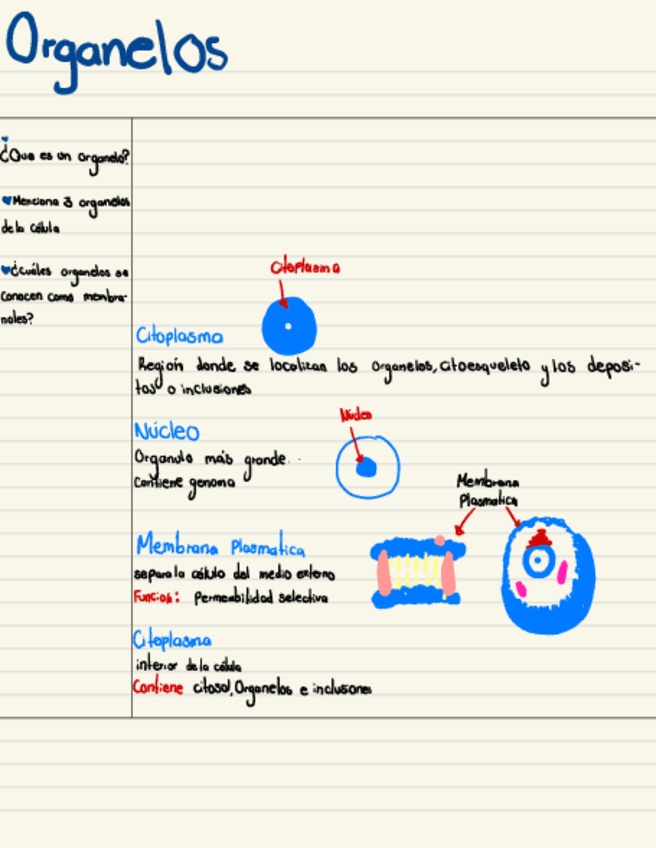 Organelos
¿Que es un organelo?
Menciona 3 organelos
de la célula
¿Cuáles organelos se
conocen como membra-
nales?
Citoplasma
Citoplasma
Región donde se localizan los organelos, citoesqueleto y los deposi-
tos o inclusiones
Núcleo
Núcleo
Organulo más grande.
Contiene genoma
Membrana
Plasmatica
Membrana Plasmatica
separa la célula del medio externo
Función: Permeabilidad selectiva
Citoplasma
interior de la célula
Contiene citosol, Organelos e inclusiones